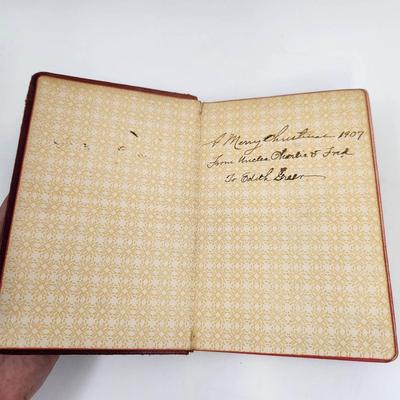 A Merry Christmas 1907
From Uncles Charlie & Fred
To Edith Green